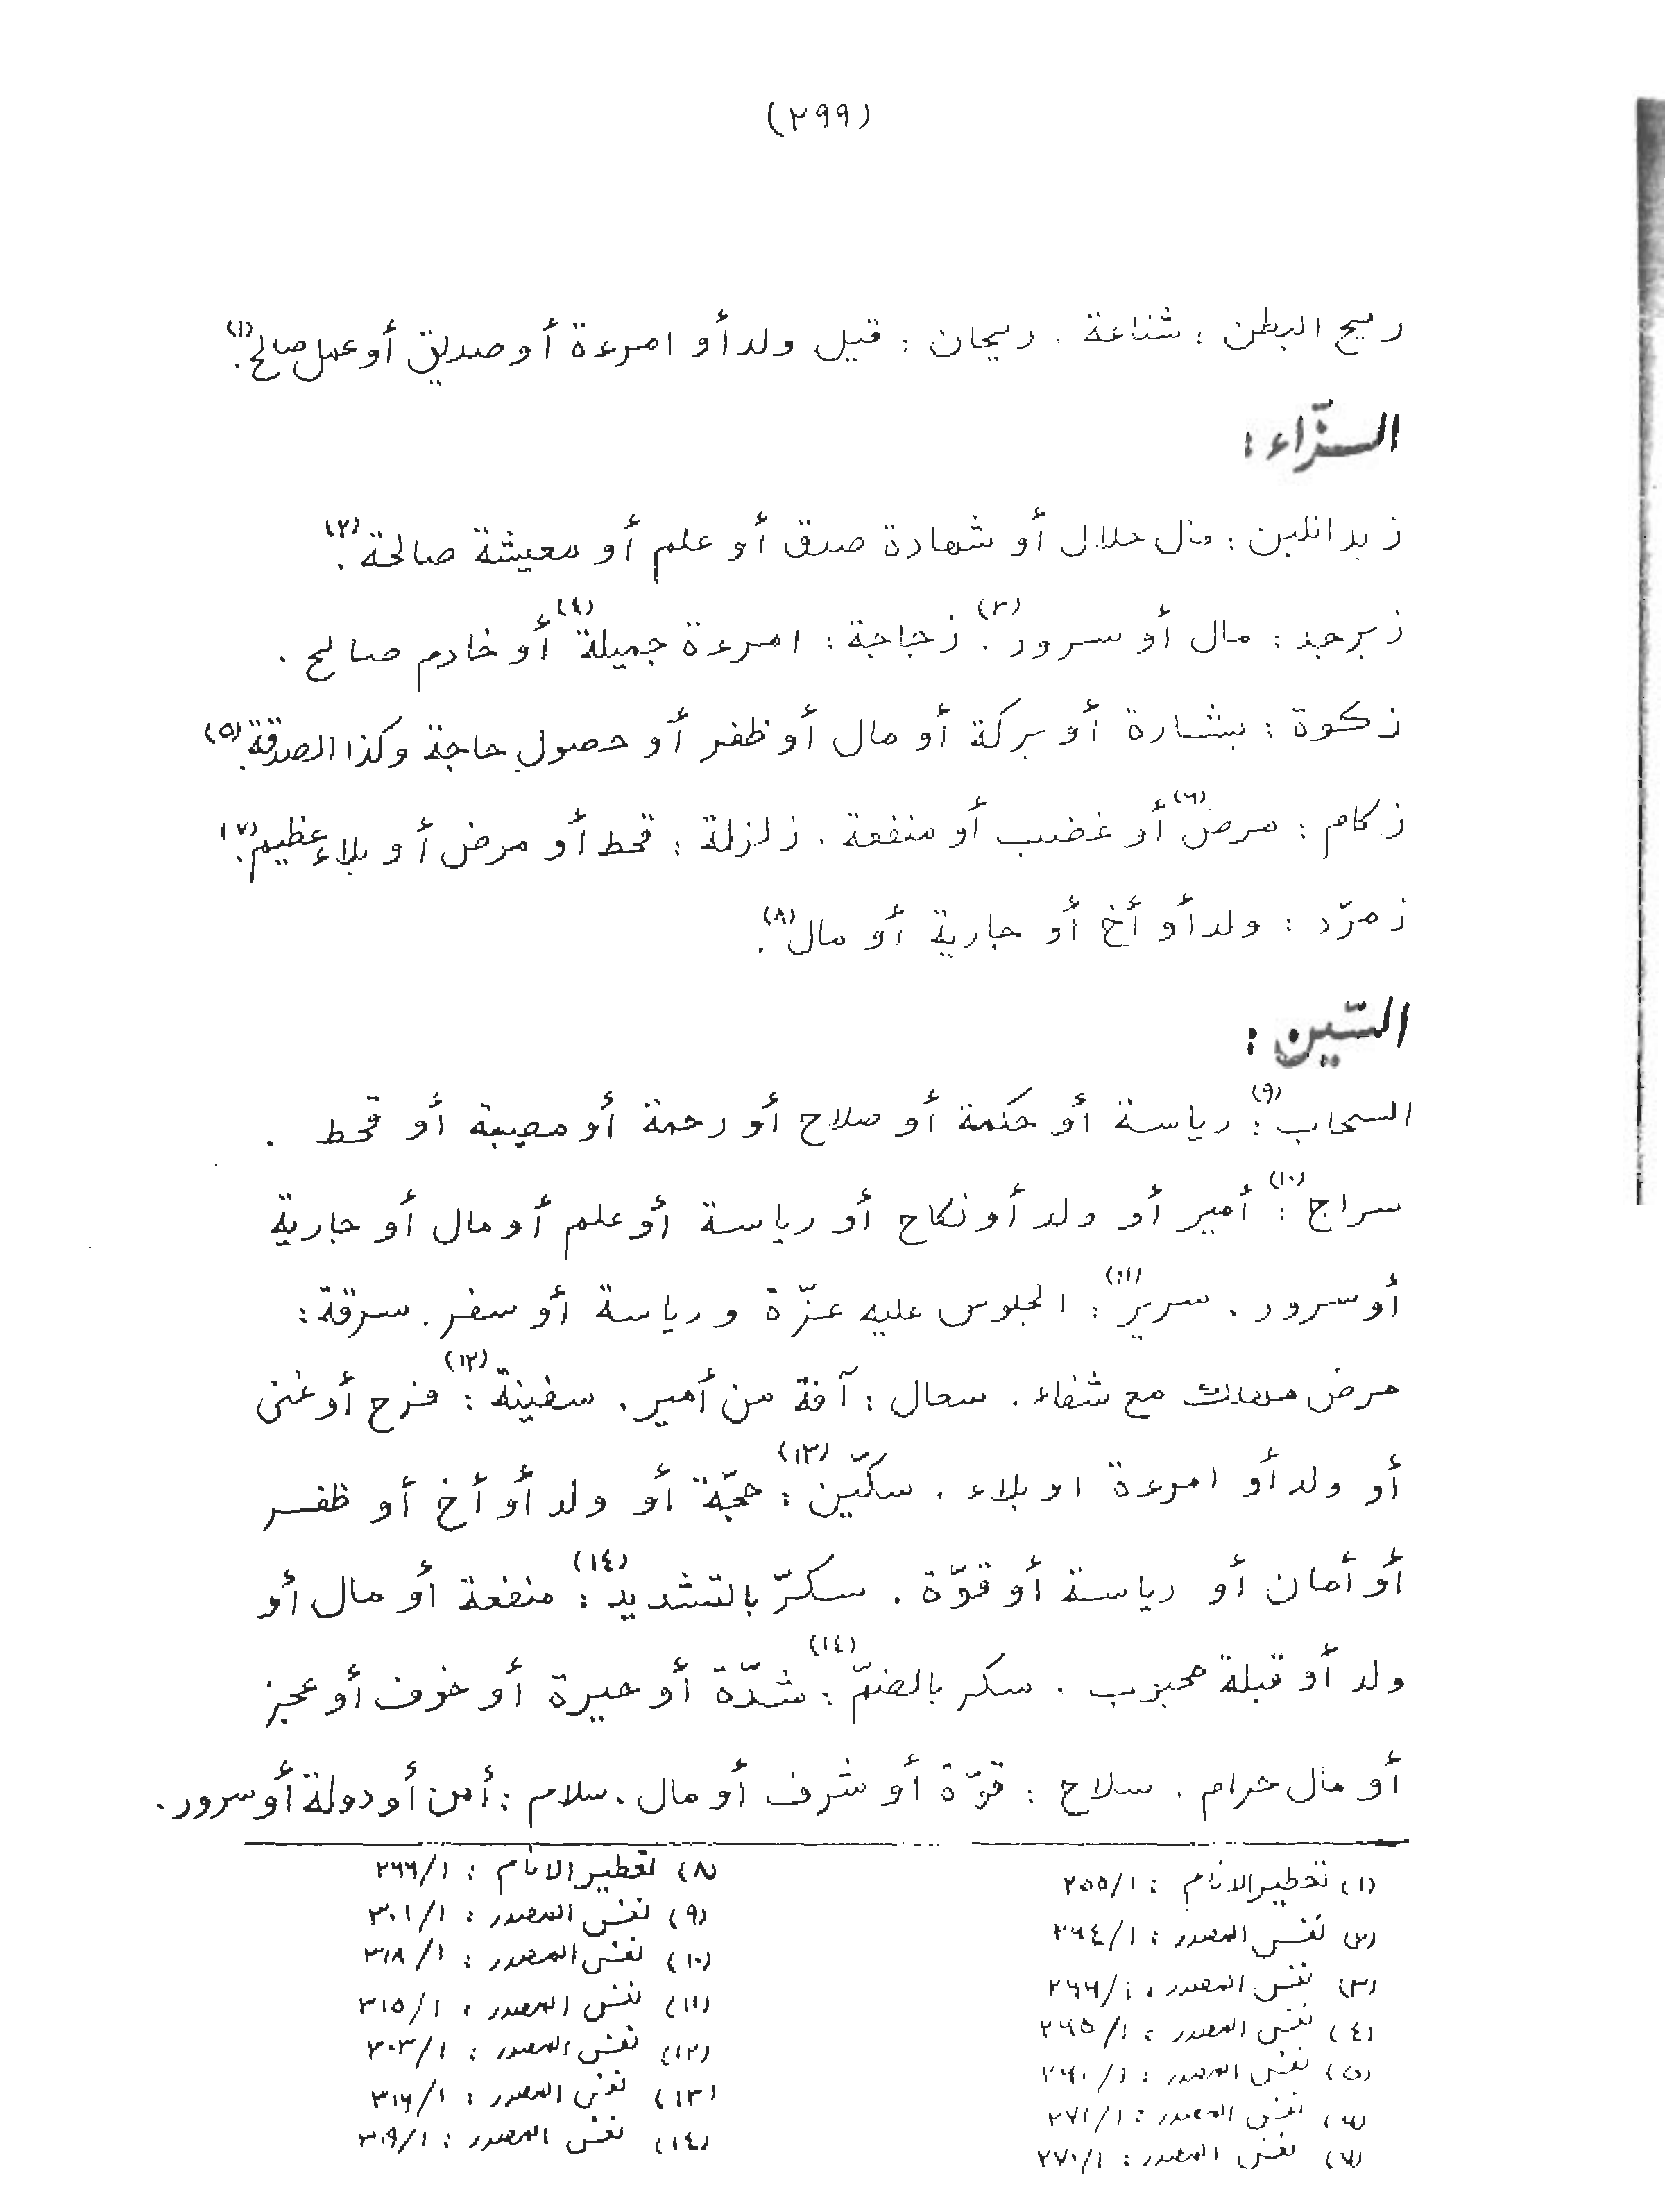 (٢٩٩)
ريح البطن : شناعة . ريحان : قيل ولد أو امرءة أو صديق أو عمل صالح(١).
الـزّاء :
زبد اللبن : مال حلال أو شهادة صدق أو علم أو معيشة صالحة(٢).
زبرجد : مال أو سرور(٣). زجاجة : امرءة جميلة(٤) أو خادم صالح .
زكوة : بشارة أو بركة أو مال أو ظفر أو حصول حاجة وكذا الصدقة(٥).
زكام : مرض(٦) أو غضب أو منفعة . زلزلة : قحط أو مرض أو بلاء عظيم(٧).
زمرّد : ولد أو أخ أو جارية أو مال(٨).
السّين :
السحاب(٩): رياسة أو حكمة أو صلاح أو رحمة أو مصيبة أو قحط .
سراج(١٠): أمير أو ولد أو نكاح أو رياسة أو علم أو مال أو جارية
أو سرور . سرير(١١): الجلوس عليه عزّة ورياسة أو سفر . سرقة :
مرض مهلك مع شفاء . سعال : آفة من أمير . سفينة(١٢): فرح أو غنى
أو ولد أو امرءة او بلاء . سكّين(١٣): حجّة أو ولد أو أخ أو ظفر
أو أمان أو رياسة أو قوّة . سكرّ بالتشديد(١٤): منفعة أو مال أو
ولد أو قبلة محبوب . سكر بالضمّ(١٤): شدّة أو حيرة أو خوف أو عجز
أو مال حرام . سلاح : قوّة أو شرف أو مال . سلام : أمن أو دولة أو سرور .
(١) تعطير الانام : ٢٥٥/١
(٢) نفس المصدر : ٢٦٤/١
(٣) نفس المصدر : ٢٦٦/١
(٤) نفس المصدر : ٢٦٥/١
(٥) نفس المصدر : ٢٦٠/١
(٦) نفس المصدر : ٢٧١/١
(٧) نفس المصدر : ٢٧٠/١
(٨) تعطير الانام : ٢٦٦/١
(٩) نفس المصدر : ٣٠١/١
(١٠) نفس المصدر : ٣١٨/١
(١١) نفس المصدر : ٣١٥/١
(١٢) نفس المصدر : ٣٠٣/١
(١٣) نفس المصدر : ٣١٦/١
(١٤) نفس المصدر : ٣٠٩/١